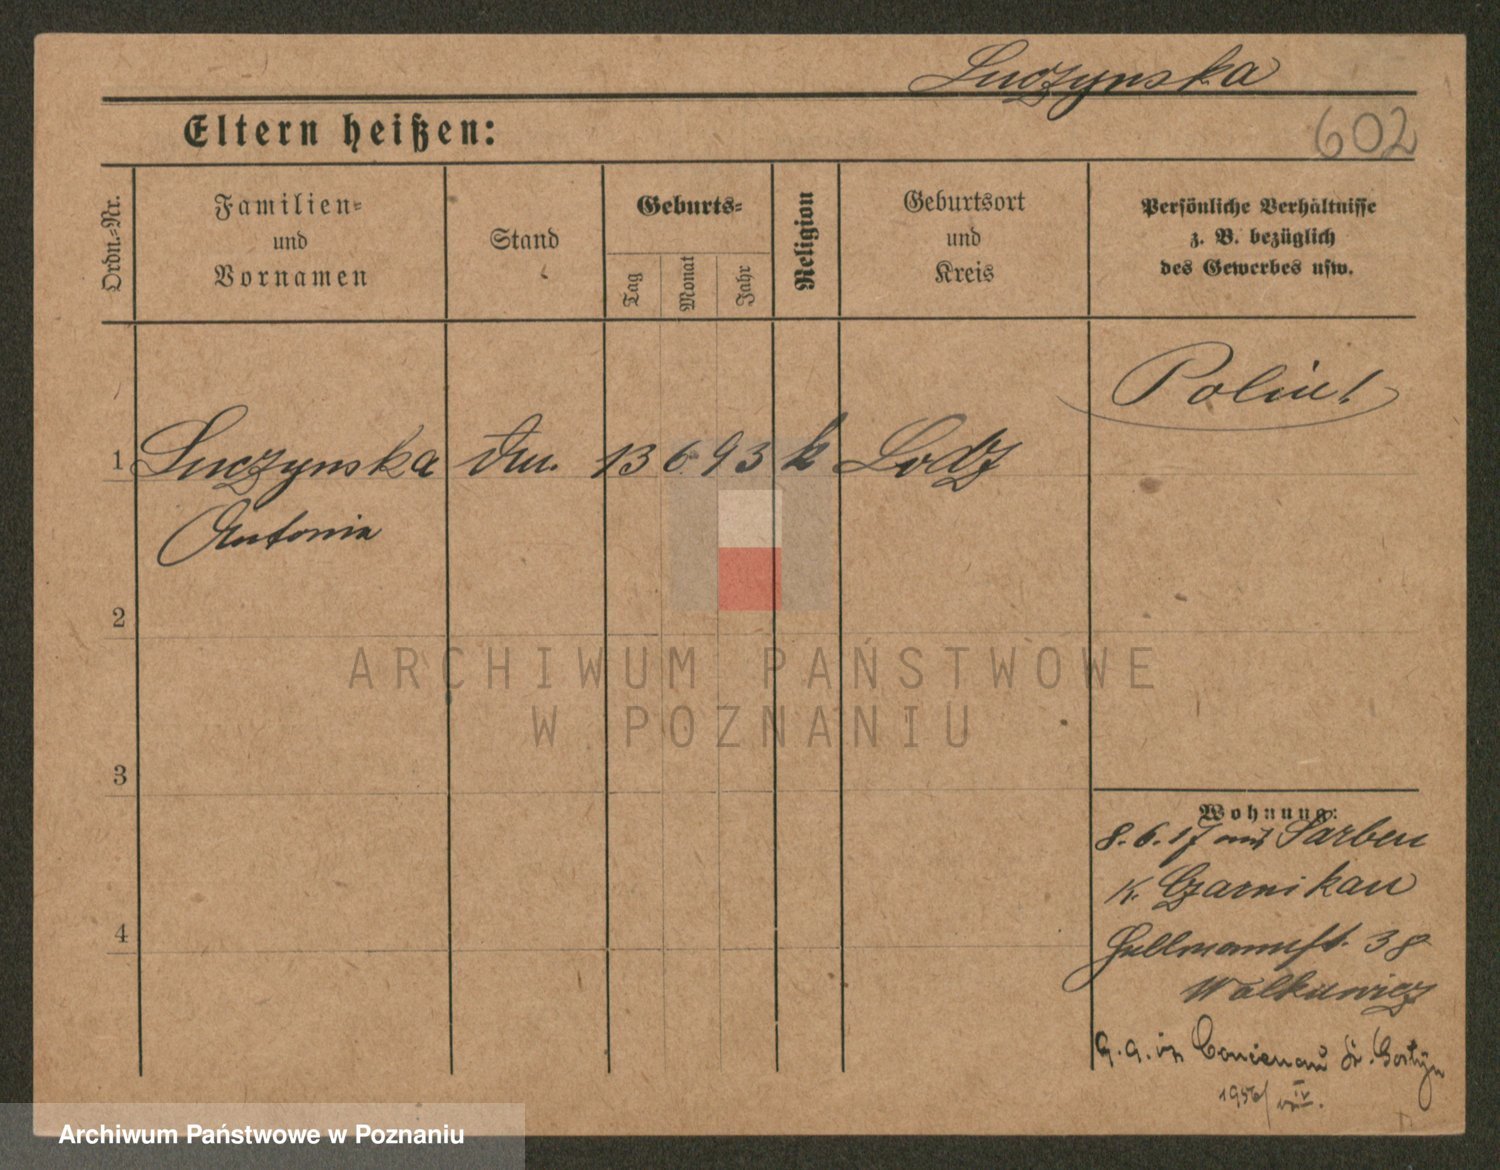 Luczynska
Eltern heißen:
602
Ordn.=Nr.
Familien=
und
Vornamen
Stand
Geburts=
Tag
Monat
Jahr
Religion
Geburtsort
und
Kreis
Persönliche Verhältnisse
z. B. bezüglich
des Gewerbes usw.
Polin!
1 Luczynska 13 6 93 k Lodz
Antonia
2
3
4
Wohnung:
8.6.17 aus Sarben
K. Czarnikau
38
in Gostyn
ARCHIWUM PAŃSTWOWE
W POZNANIU
Archiwum Państwowe w Poznaniu